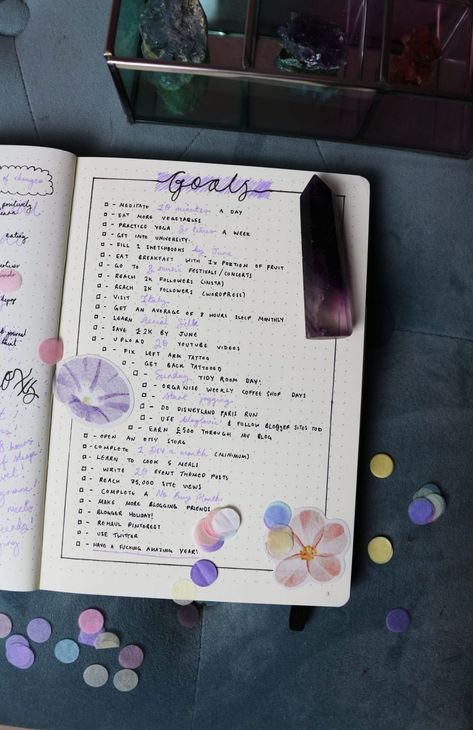 of changes
positively
eating
Goals
- MEDITATE 20 minutes A DAY
- EAT MORE VEGETABLES
- PRACTICE YOGA 3 times A WEEK
- GET INTO UNIVERSITY
- FILL 2 SKETCHBOOKS by June
- EAT BREAKFAST WITH 1x PORTION OF FRUIT
- GO TO 2 music FESTIVALS/CONCERTS
- REACH 2K FOLLOWERS (INSTA)
- REACH 3K FOLLOWERS (WORDPRESS)
- VISIT Italy
- GET AN AVERAGE OF 8 HOURS SLEEP MONTHLY
- LEARN Aerial Silk
- SAVE £2K BY JUNE
- UPLOAD 20 YOUTUBE VIDEOS
- FIX LEFT ARM TATTOO
- GET BACK TATTOOED
- Sunday TIDY ROOM DAY!
- ORGANISE WEEKLY COFFEE SHOP DAYS
- Start jogging
- DO DISNEYLAND PARIS RUN
- USE bloglovin' & FOLLOW BLOGGER SITES TOO
- EARN £500 THROUGH MY BLOG
- OPEN AN ETSY STORE
- COMPLETE 1 DIY a month (MINIMUM)
- LEARN TO COOK 5 MEALS
- WRITE 20 EVENT THEMED POSTS
- REACH 75,000 SITE VIEWS
- COMPLETE A No Buy Month
- MAKE MORE BLOGGING FRIENDS
- BLOGGER HOLIDAY!
- REHAUL PINTEREST
- USE TWITTER
- HAVE A FUCKING AMAZING YEAR!
3